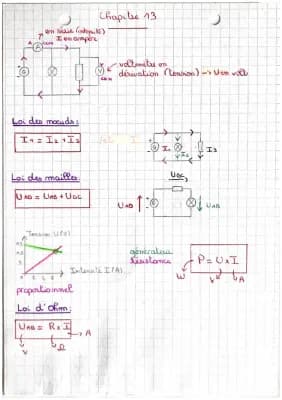 Chapitre 13
en série (intensité)
I en ampère
A
COM
G
A
V
COM
voltmètre en
dérivation (tension) → UAB volt
Loi des nœuds:
I1 = I2 + I3
G
I1
I2
I3
Loi des mailles:
UAD = UAB + UBC
UBC
UAD
G
UAB
Tension U(V)
Intensité I (A)
proportionnel
générateur
résistance
P = U x I
W
V
A
Loi d'Ohm:
UAB = R x I
V
Ω
A